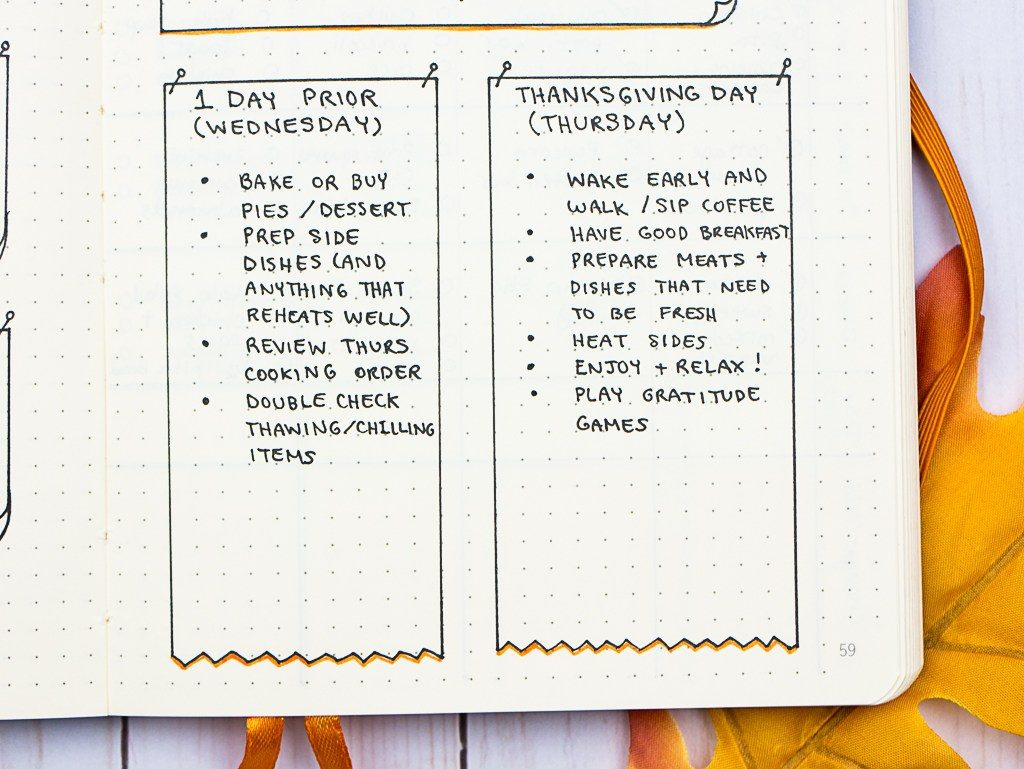 1 DAY PRIOR
(WEDNESDAY)
• BAKE OR BUY
PIES / DESSERT
• PREP SIDE
DISHES (AND
ANYTHING THAT
REHEATS WELL)
• REVIEW THURS.
COOKING ORDER
• DOUBLE CHECK
THAWING/CHILLING
ITEMS
THANKSGIVING DAY
(THURSDAY)
• WAKE EARLY AND
WALK / SIP COFFEE
• HAVE GOOD BREAKFAST
• PREPARE MEATS +
DISHES THAT NEED
TO BE FRESH
• HEAT SIDES
• ENJOY + RELAX!
• PLAY GRATITUDE
GAMES
59